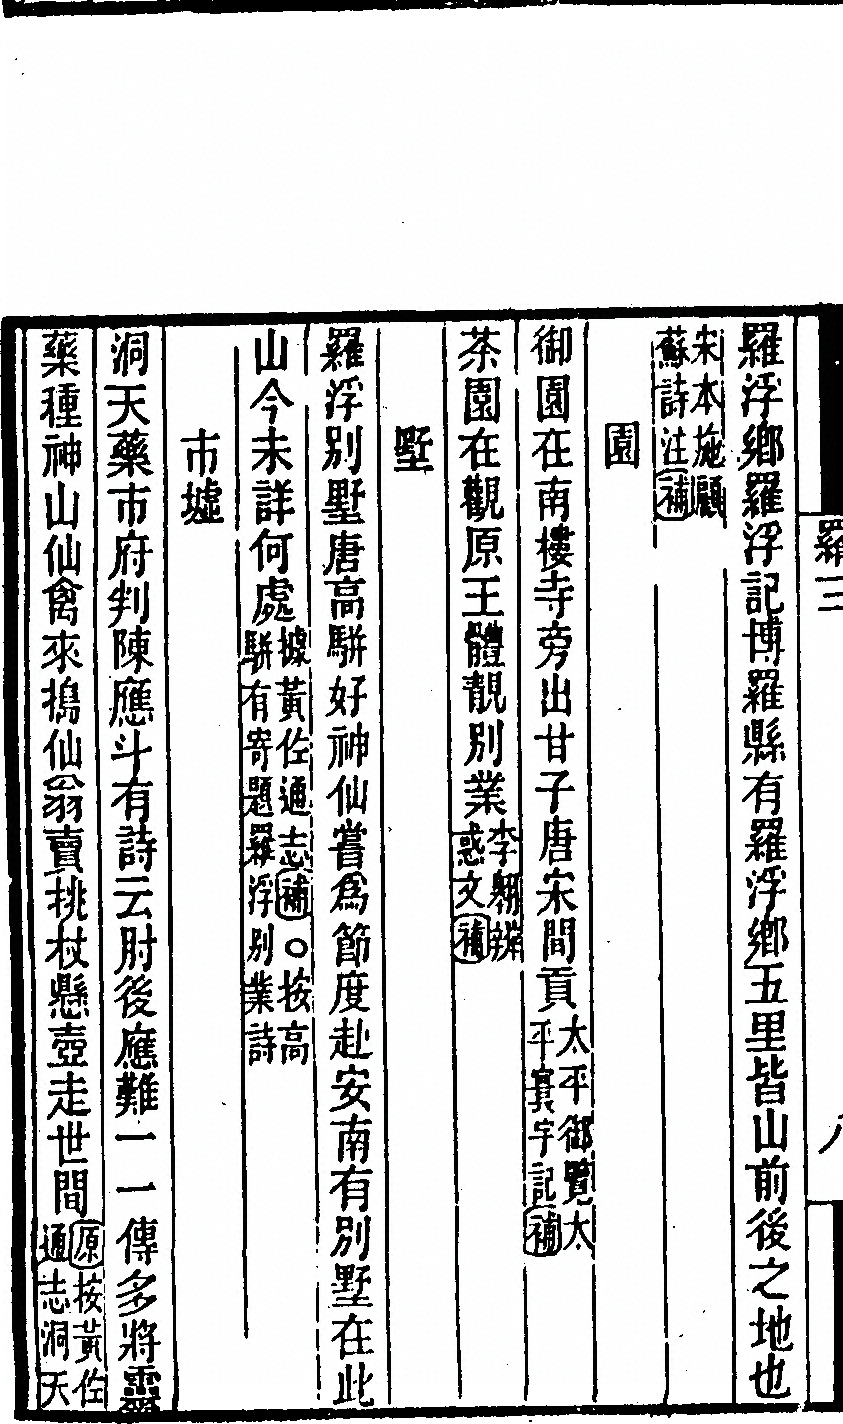 羅浮鄉羅浮記博羅縣有羅浮鄉五里皆山前後之地也
宋本施顧
蘇詩注補
園
御園在南樓寺旁出甘子唐宋間貢
太平御覽太
平寰宇記補
茶園在觀原王體靚別業
李翱辨
惑文補
墅
羅浮別墅唐高駢好神仙嘗為節度赴安南有別墅在此
山今未詳何處
據黃佐通志補○按高
駢有寄題羅浮別業詩
市墟
洞天藥市府判陳應斗有詩云肘後應難一一傳多將靈
藥種神山仙禽來搗仙翁賣挑杖懸壺走世間
原按黃佐
通志洞天